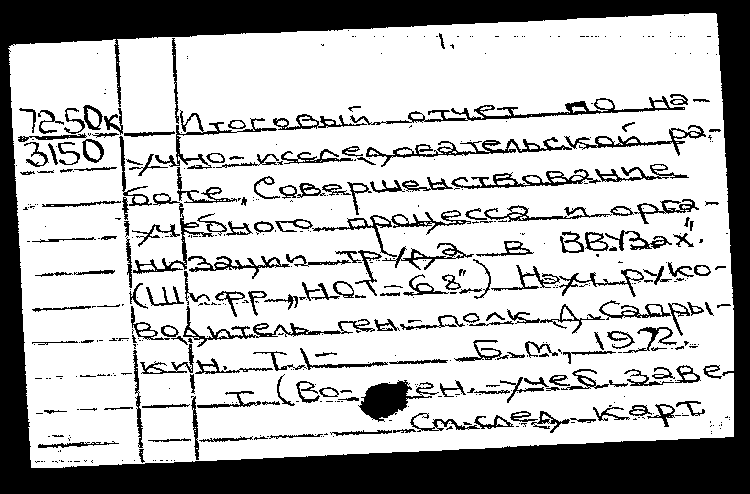 1.
72-50к Итоговый отчет по на-
3150 учно-исследовательской ра-
боте „Совершенствование
учебного процесса и орга-
низации труда в ВВУЗах".
(Шифр „НОТ-68") Науч. руко-
водитель ген.-полк Д. Сапры-
кин. Т.1- Б.м., 1972.
т (Во- ен. учеб. заве-
См. след. карт.